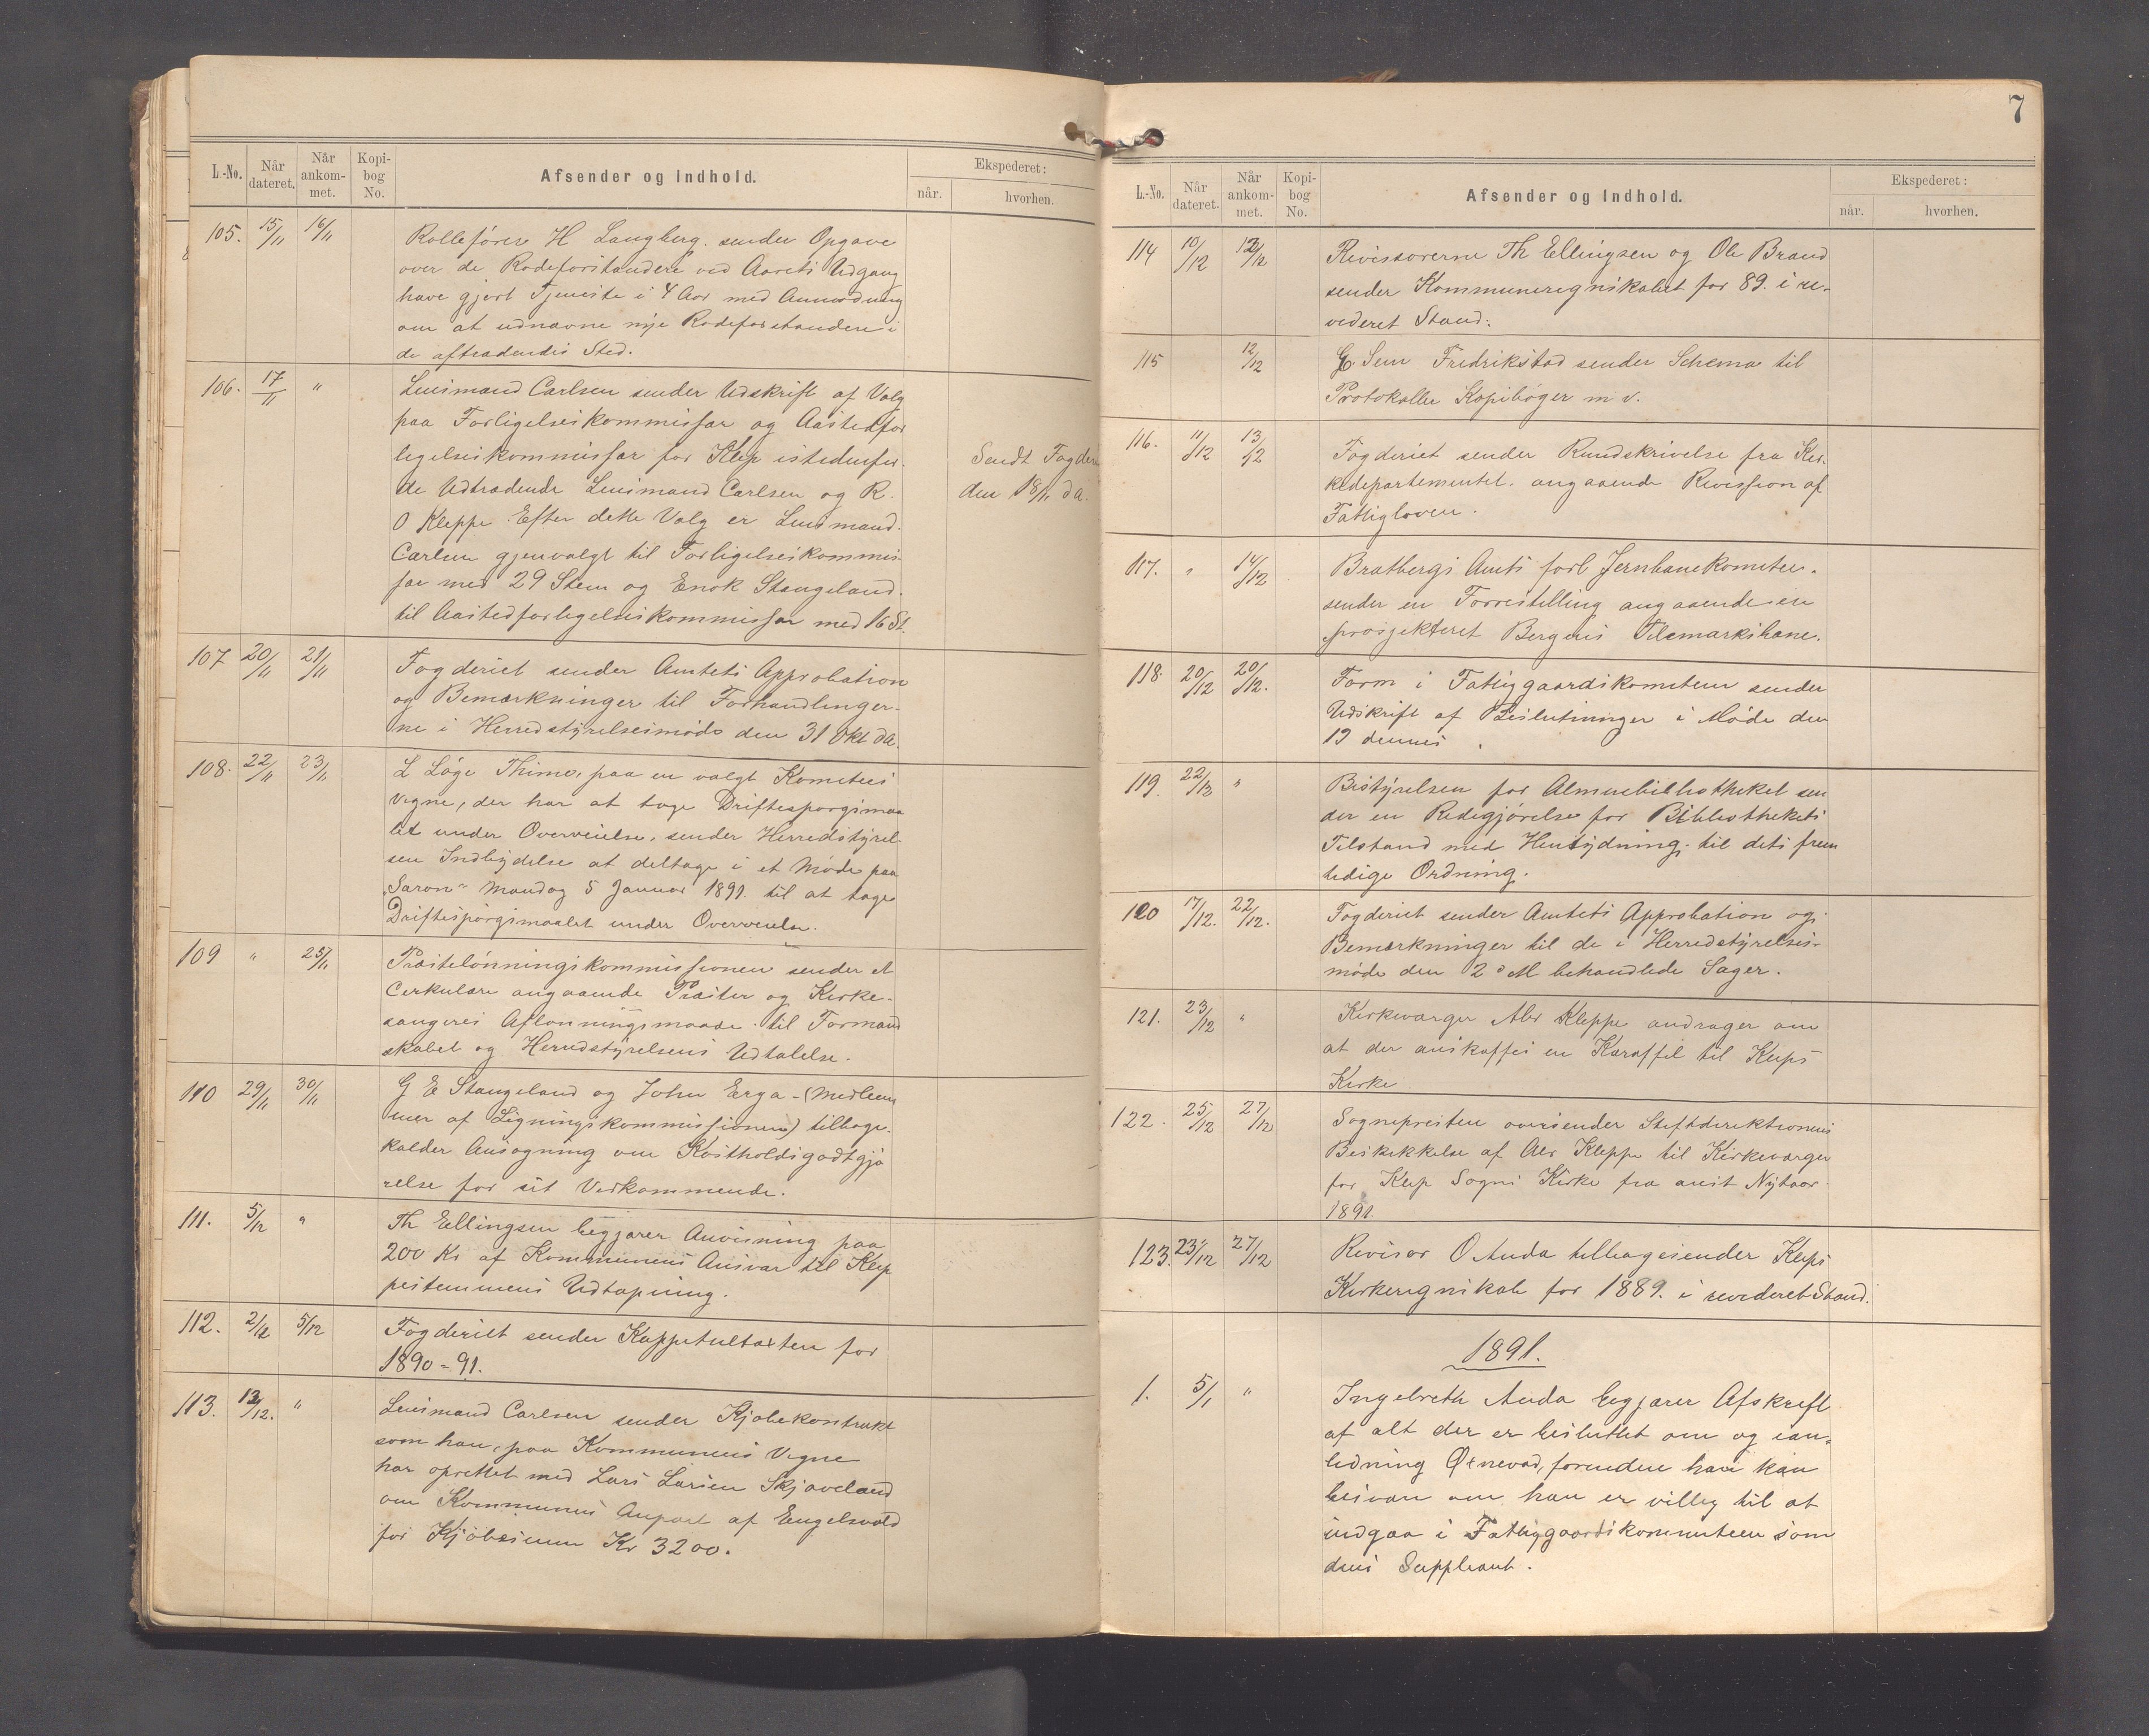 L.-No. Når dateret. Når ankommet. Kopibog No. Afsender og Indhold. Ekspederet: når. hvorhen.
105. 15/11 16/11 Rollefører H Langberg. sender Opgave
over de Rodeforstandere ved Aarets Udgang
have gjort Tjeneste i 4 Aar med Anmodning
om at udnævne nye Rodeforstandere i
de aftrædendes Sted.
106. 17/11 " Lensmand Carlsen sender Udskrift af Valg
paa Forligelseskommissær og Aastedfor
legelseskommissær for Klep istedenfor
de Udtrædende Lensmand Carlsen og R.
O Kleppe. Efter dette Valg er Lensmand
Carlsen gjenvalgt til Forligelseskommis-
sær med 29 Stem og Enok Stangeland.
til Aastedforlegelseskommissær med 16 St.
Sendt Fogderi
den 18/11 da.
107 20/11 21/11 Fogderiet sender Amtets Approbation
og Bemærkninger til Forhandlinger-
ne i Herredstyrelsesmøde den 31 Okt da.
108. 22/11 23/11 L Löge Thime, paa en valgt Komitees
Vegne, der har at tage Driftespørgsmaa
let under Overveielse, sender Herredstyrel-
sen Indbydelse at deltage i et Møde paa
"Saron" Mandag 5 Januar 1891. til at tage
Driftespørgsmaalet under Overveielse.
109 " 25/11 Præstelønningskommissionen sender et
Cirkulære angaaende Præster og Kirke-
sangeres Aflønningsmaade til Formand
skabet og Herredstyrelsens Udtalelse.
110 29/11 30/11 G E Stangeland og John Erga - (Medlem
mer af Ligningskommissionen) tilbage-
kalder Ansøgning om Kostholdsgodtgjø
relse for sit Vedkommende.
111. 5/12 " Th Ellingsen begjærer Anvisning paa
200 Kr af Kommunens Ansvar til Klep
pestemmens Udtapning.
112. 2/12 5/12 Fogderiet sender Kapitultaxten for
1890-91.
113. 13/12. " Lensmand Carlsen sender Kjøbekontrakt
som han, paa Kommunens Vegne
har oprettet med Lars Larsen Skjæveland
om Kommunens Anpart af Engelsvold
for Kjøbesum Kr 3200.
7
L.-No. Når dateret. Når ankommet. Kopibog No. Afsender og Indhold. Ekspederet: når. hvorhen.
114 10/12 12/12 Revisorerne Th Ellingsen og Ole Braud
sender Kommuneregnskabet for 89. i re-
videret Stand.
115 12/12 E. Sem Fredrikstad sender Schema til
Protokoller Kopibøger m v.
116. 11/12 13/12 Fogderiet sender Rundskrivelse fra Kir-
kedepartementet. angaaende Revission af
Fattigloven.
117. " 14/12 Bratbergs Amts forl Jernbanekomitee.
sender en Forrestilling angaaende en
prosjekteret Bergens Telemarksbane.
118. 20/12 20/12. Form i Fattiggaardskomiteen sender
Udskrift af Beslutninger i Møde den
19 dennes.
119. 22/12 " Bestyrelsen for Almuebibliotheket sen
der en Redegjørelse for Bibliothekets
Tilstand med Hentydning til dets frem
tidige Ordning.
120 17/12. 22/12. Fogderiet sender Amtets Approbation og
Bemærkninger til de i Herredstyrelses-
møde den 2 d M behandlede Sager.
121. 23/12 " Kirkeværger Alex Kleppe andrager om
at der anskaffes en Karaffel til Kleps
Kirke
122. 25/12 27/12 Sognepresten oversender Stiftsdirektionens
Beskikkelse af Alex Kleppe til Kirkeværger
for Klep Sogns Kirke fra anst Nytaar
1891.
123. 23/12 27/12 Revisor O Anda tilbagesender Kleps
Kirkeregnskab for 1889. i revideret Stand.
1891.
1. 5/1 " Ingebreth Anda begjærer Afskrift
af alt der er besluttet om og i an-
ledning Ørnevad, forinden han kan
besvare om han er villig til at
indgaa i Fattiggaardskommiteen som
dens Suppleant.